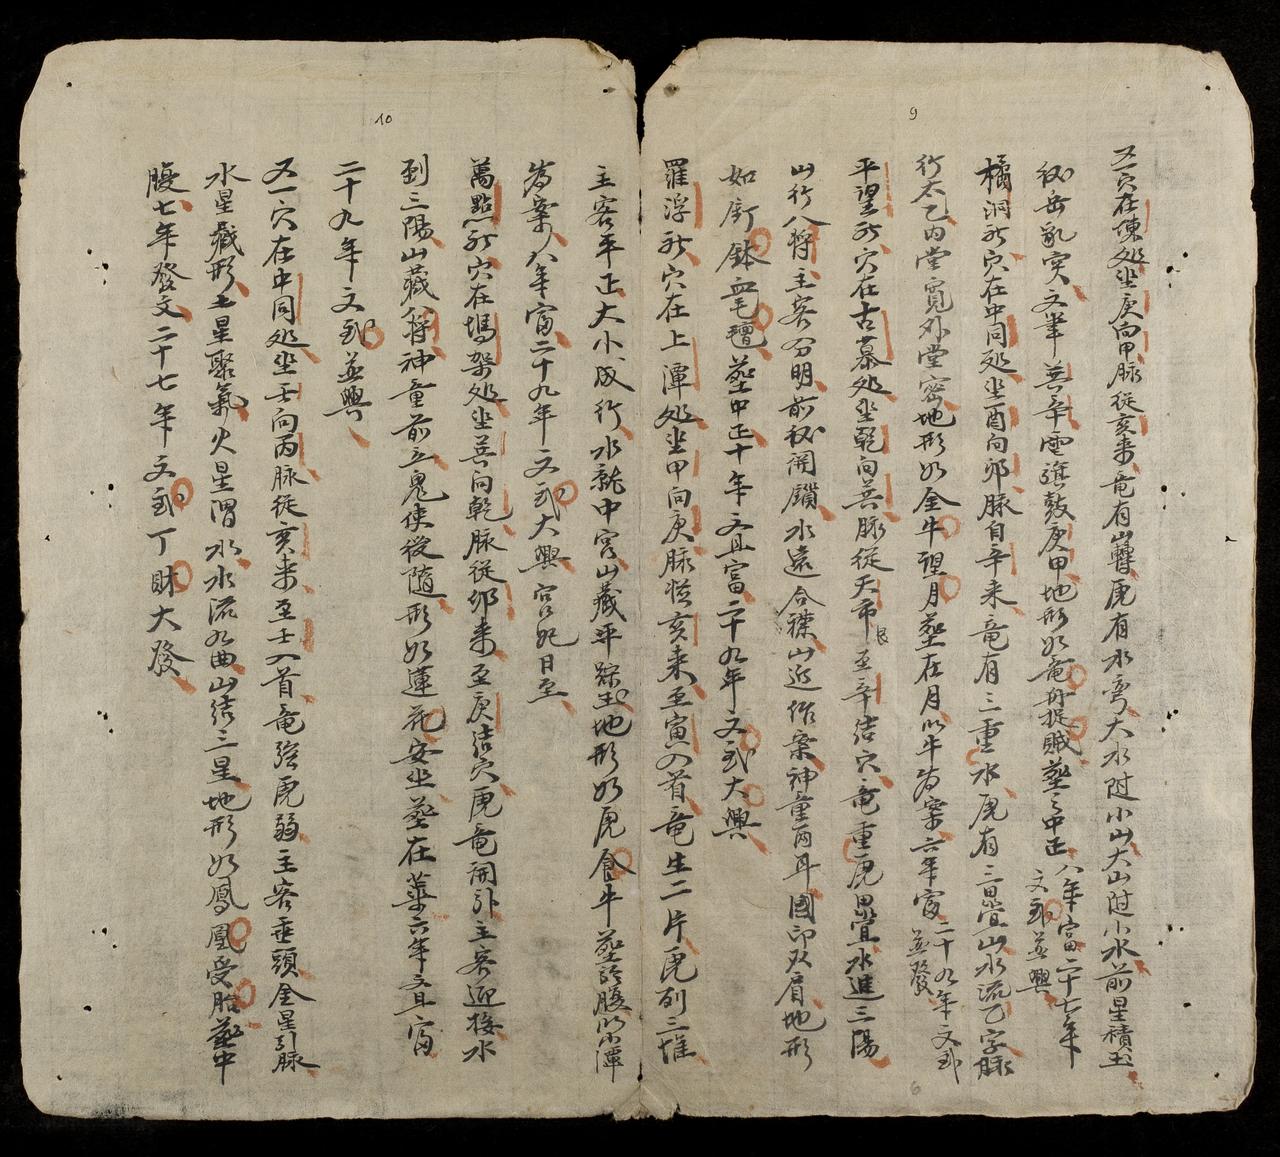 9
又一穴在陳処坐庚向甲脉從亥来竜有山轉虎有水弯大水陡小山大山陡小水前星積玉
秘岳敢突文筆並辛雲旗鼓庚甲地形如竜舟捉賊塟之中正八年富二十七年文武並興
橘洞社穴在中同処坐酉向卯脉自辛来竜有三重水虎有三疊山水流乙字脉
行太乙内堂寛外堂密地形如金牛望月塟在月以牛為案六年富二十九年文武並發
平望社穴在古墓処坐乾向巽脉從天市艮至辛结穴竜重虎疊水進三陽
山行八将主客分明前秘開鎖水遠合襟山近作案神童两耳國印双眉地形
如釘鉢 塟中正十年文且富二十九年文武大興
羅浮社穴在上潭処坐甲向庚脉從亥来至寅入首竜生二片虎列三堆
10
主客平正大小成行水龍中宮山藏平踪玉地形如虎食牛塟於腹以小潭
為案八年富二十九年文武大興官妃日至
萬點社穴在塢架処坐巽向乾脉從卯来至庚结穴虎竜開外主客迎接水
到三陽山藏八将神童前立鬼使後随形如蓮花安坐塟在蕚六年文且富
二十九年文武並興
又一穴在中同処坐壬向丙脉從亥来至壬入首竜強虎弱主客垂頭金星引脉
水星藏形土星聚氣火星潤水水流九曲山结三星地形如鳳凰受胎塟中
腹七年發文二十七年文武丁財大發
6